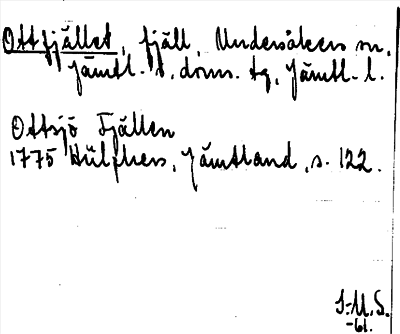 Ottfjället, fjäll, Undersåkers sn,
Jämtl. s. doms. tg, Jämtl. l.
Ottsjö Fjällen
1775 Hülphers, Jämtland, s. 122.
S:M.S.
-61.